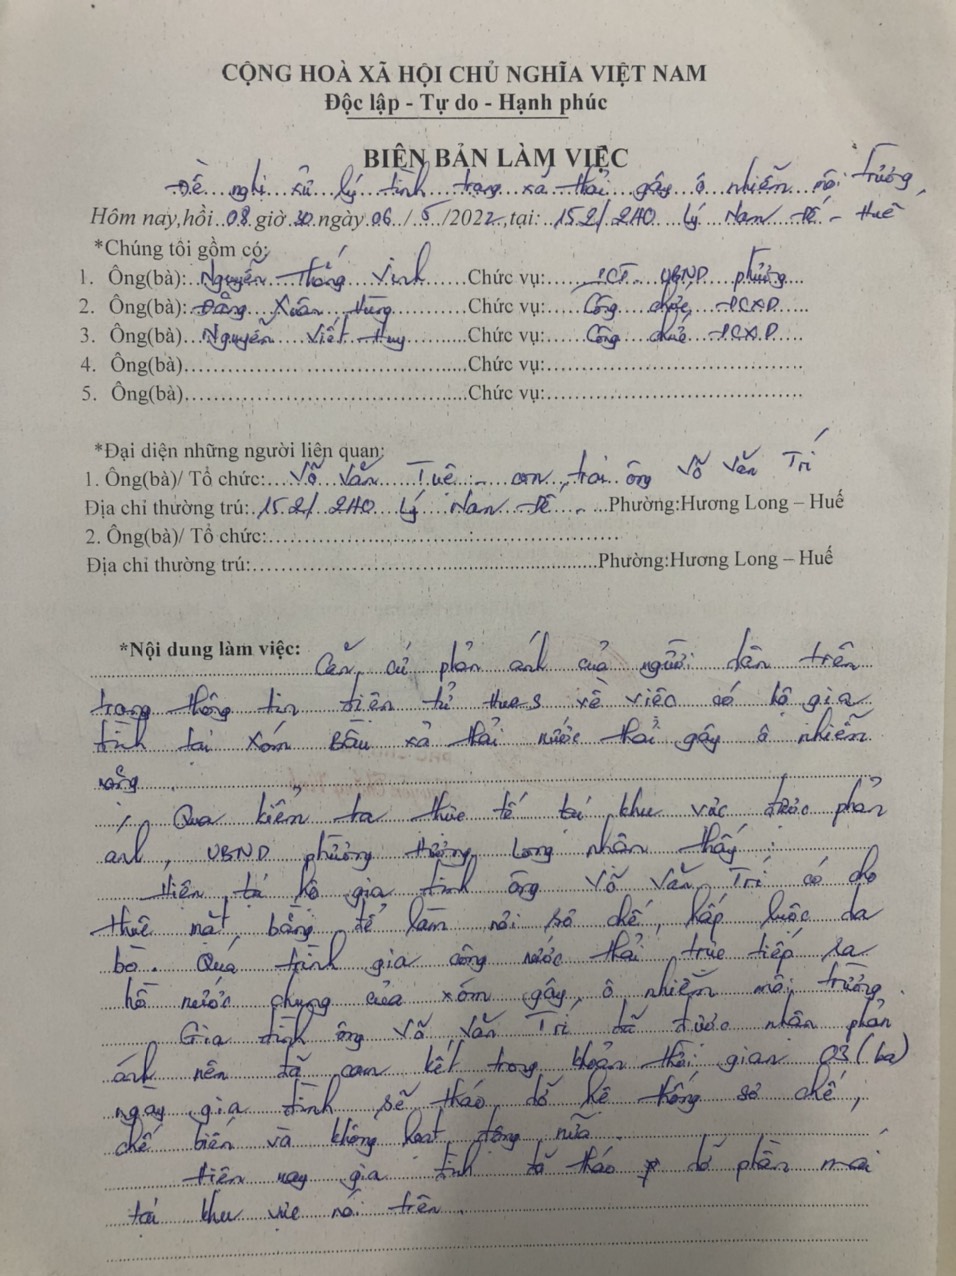 CỘNG HOÀ XÃ HỘI CHỦ NGHĨA VIỆT NAM
Độc lập - Tự do - Hạnh phúc
BIÊN BẢN LÀM VIỆC
Đề nghị xử lý tình trạng xả thải gây ô nhiễm môi trường
Hôm nay, hồi 08 giờ 30 ngày 06 / 5 /2022, tại: 152/240 Lý Nam Đế - Huế
*Chúng tôi gồm có:
1. Ông(bà): Nguyễn Thắng Vinh Chức vụ: PCT UBND phường
2. Ông(bà): Đặng Xuân Hùng Chức vụ: Công chức
3. Ông(bà) Nguyễn Viết Huy Chức vụ: Công chức
4. Ông(bà) Chức vụ:
5. Ông(bà) Chức vụ:
*Đại diện những người liên quan:
1. Ông(bà)/ Tổ chức: Võ Văn Tuê - con trai ông Võ Văn Trí
Địa chỉ thường trú: 152/240 Lý Nam Đế Phường:Hương Long – Huế
2. Ông(bà)/ Tổ chức:
Địa chỉ thường trú: Phường:Hương Long – Huế
*Nội dung làm việc: Căn cứ phản ánh của người dân trên
trang thông tin điện tử Hue-S về việc có hộ gia
đình tại Xóm Bầu xả thải nước thải gây ô nhiễm
Qua kiểm tra thực tế tại khu vực được phản
ánh, UBND phường Hương Long nhận thấy :
Hiện tại hộ gia đình ông Võ Văn Trí có cho
thuê mặt bằng để làm nơi sơ chế, hấp luộc da
bò. Quá trình gia công nước thải trực tiếp ra
hồ nước chung của xóm gây ô nhiễm môi trường.
Gia đình ông Võ Văn Trí đã được nhận phản
ánh nên đã cam kết trong khoản thời gian 03 (ba)
ngày gia đình sẽ tháo dở hệ thống sơ chế,
chế biến và không hoạt động nữa.
Hiện nay gia đình đã tháo dở phần mái
tại khu vực nói trên.